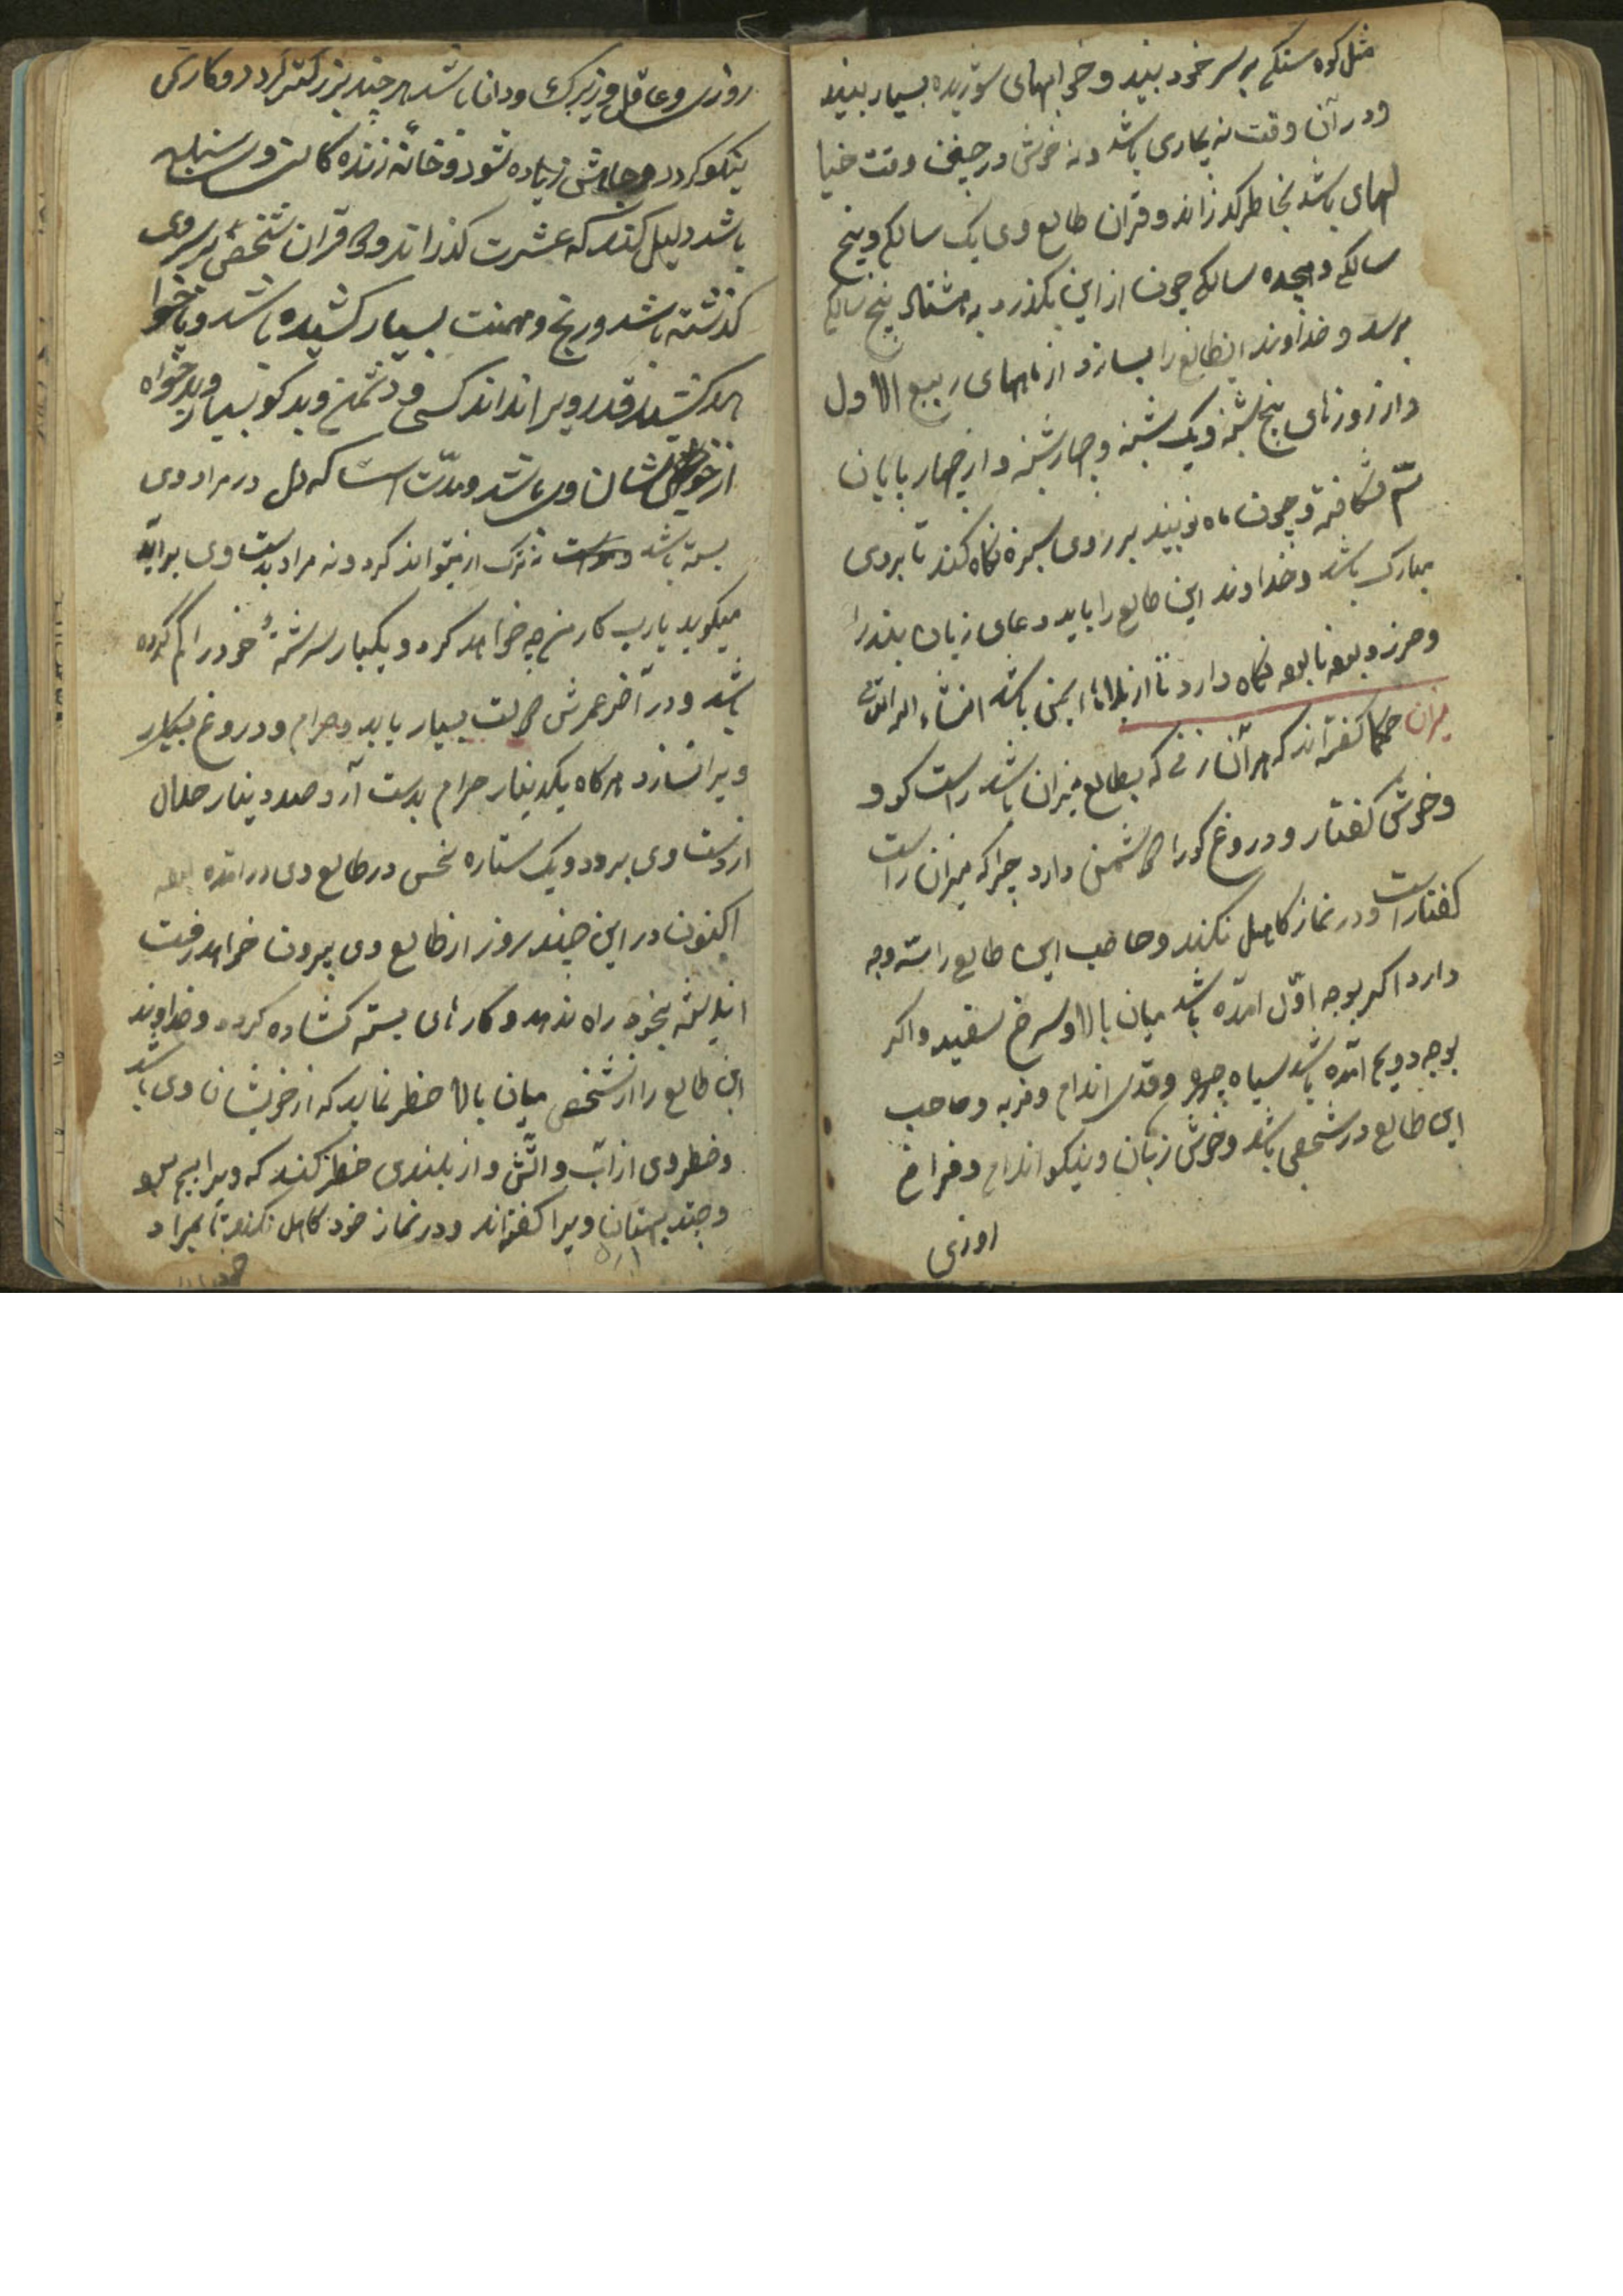 مثل کوه سنکی بر سر خود بیند و خوابهای شوریده بسیار بیند
و در آن وقت نه بیماری باشد و نه خوشی در چنین وقت خیا
لهای باشد بخاطر کذراند و قران طالع وی یک سالکی و پنج
سالکی و هجده سالکی چون از این بکذرد به هشتاد پنج سالکی
برسد و خداوند اینطالع را بسازد از ماههای ربیع الاول
و از روزهای پنج شنبه و یک شنبه و چهارشنبه و از چهار پایان
سم شکافته و چون ماه نو بیند بر روی سبزه نکاه کند تا بروی
مبارک باشد و خداوند این طالع را باید دعای زبان بند را
و حرز و با خود نکاه دارد تا از بلاها ایمن باشد انشاء الله
میزان حکما کفته‌اند که هر آن از نی که بطالع میزان باشد راست کو و
و خوش کفتار و دروغ کو را دشمن دارد چرا که میزان راست
کفتار است و در نماز کاهلی نکند و صاحب این طالع را سه وجه
دارد اکر بوجه اول آمده باشد میان بالا و سرخ سفید و اکر
بوجه دویم آمده باشد سیاه چهره و قدی اندام و فربه و صاحب
این طالع در شخصی باشد و خوش زبان و نیکو اندام و فراخ
روزی
روزی و عاقل و زیرک و دانا باشد هر چند بزرکتر کردد و کارش
نیکو کردد و جاهش زیاده شود و خانه زنده کانی و سنبله
باشد دلیل کند که عشرت کذراند و قران شخصی بر سر وی
کذشته باشد و رنج و محنت بسیار کشیده باشد و
قدر ویرا نداند کسی و دشمن و بدکو بسیار و بدخواه
از خویشان وی باشد و مدت است که دل در مراد وی
بسته باشد نه ترک از میتواند کرد و نه مراد بدست وی برآید
میکوید یارب کار من چه خواهد کرد و یکبار سر رشته خود را کم کرده
باشد و در آخر عمرش دولت بسیار یابد و حرام و دروغ بسیار
ویرا نسازد هرکاه یکدینار حرام بدست آرد صد دینار حلال
از دست وی برود و یک ستاره نحس در طالع وی در آمده
اکنون در این چند روز از طالع وی بیرون خواهد رفت
اندیشه بخود راه ندهد و کارهای بسته کشاده کردد و خداوند
این طالع را از شخصی میان بالا حذر نماید که از خویشان وی باشد
و خطر وی از آب و آتش و از بلندی حذر کند که ویرا بیم
و چند بهتان ویرا کفته‌اند و در نماز خود کاهلی نکند تا بمراد